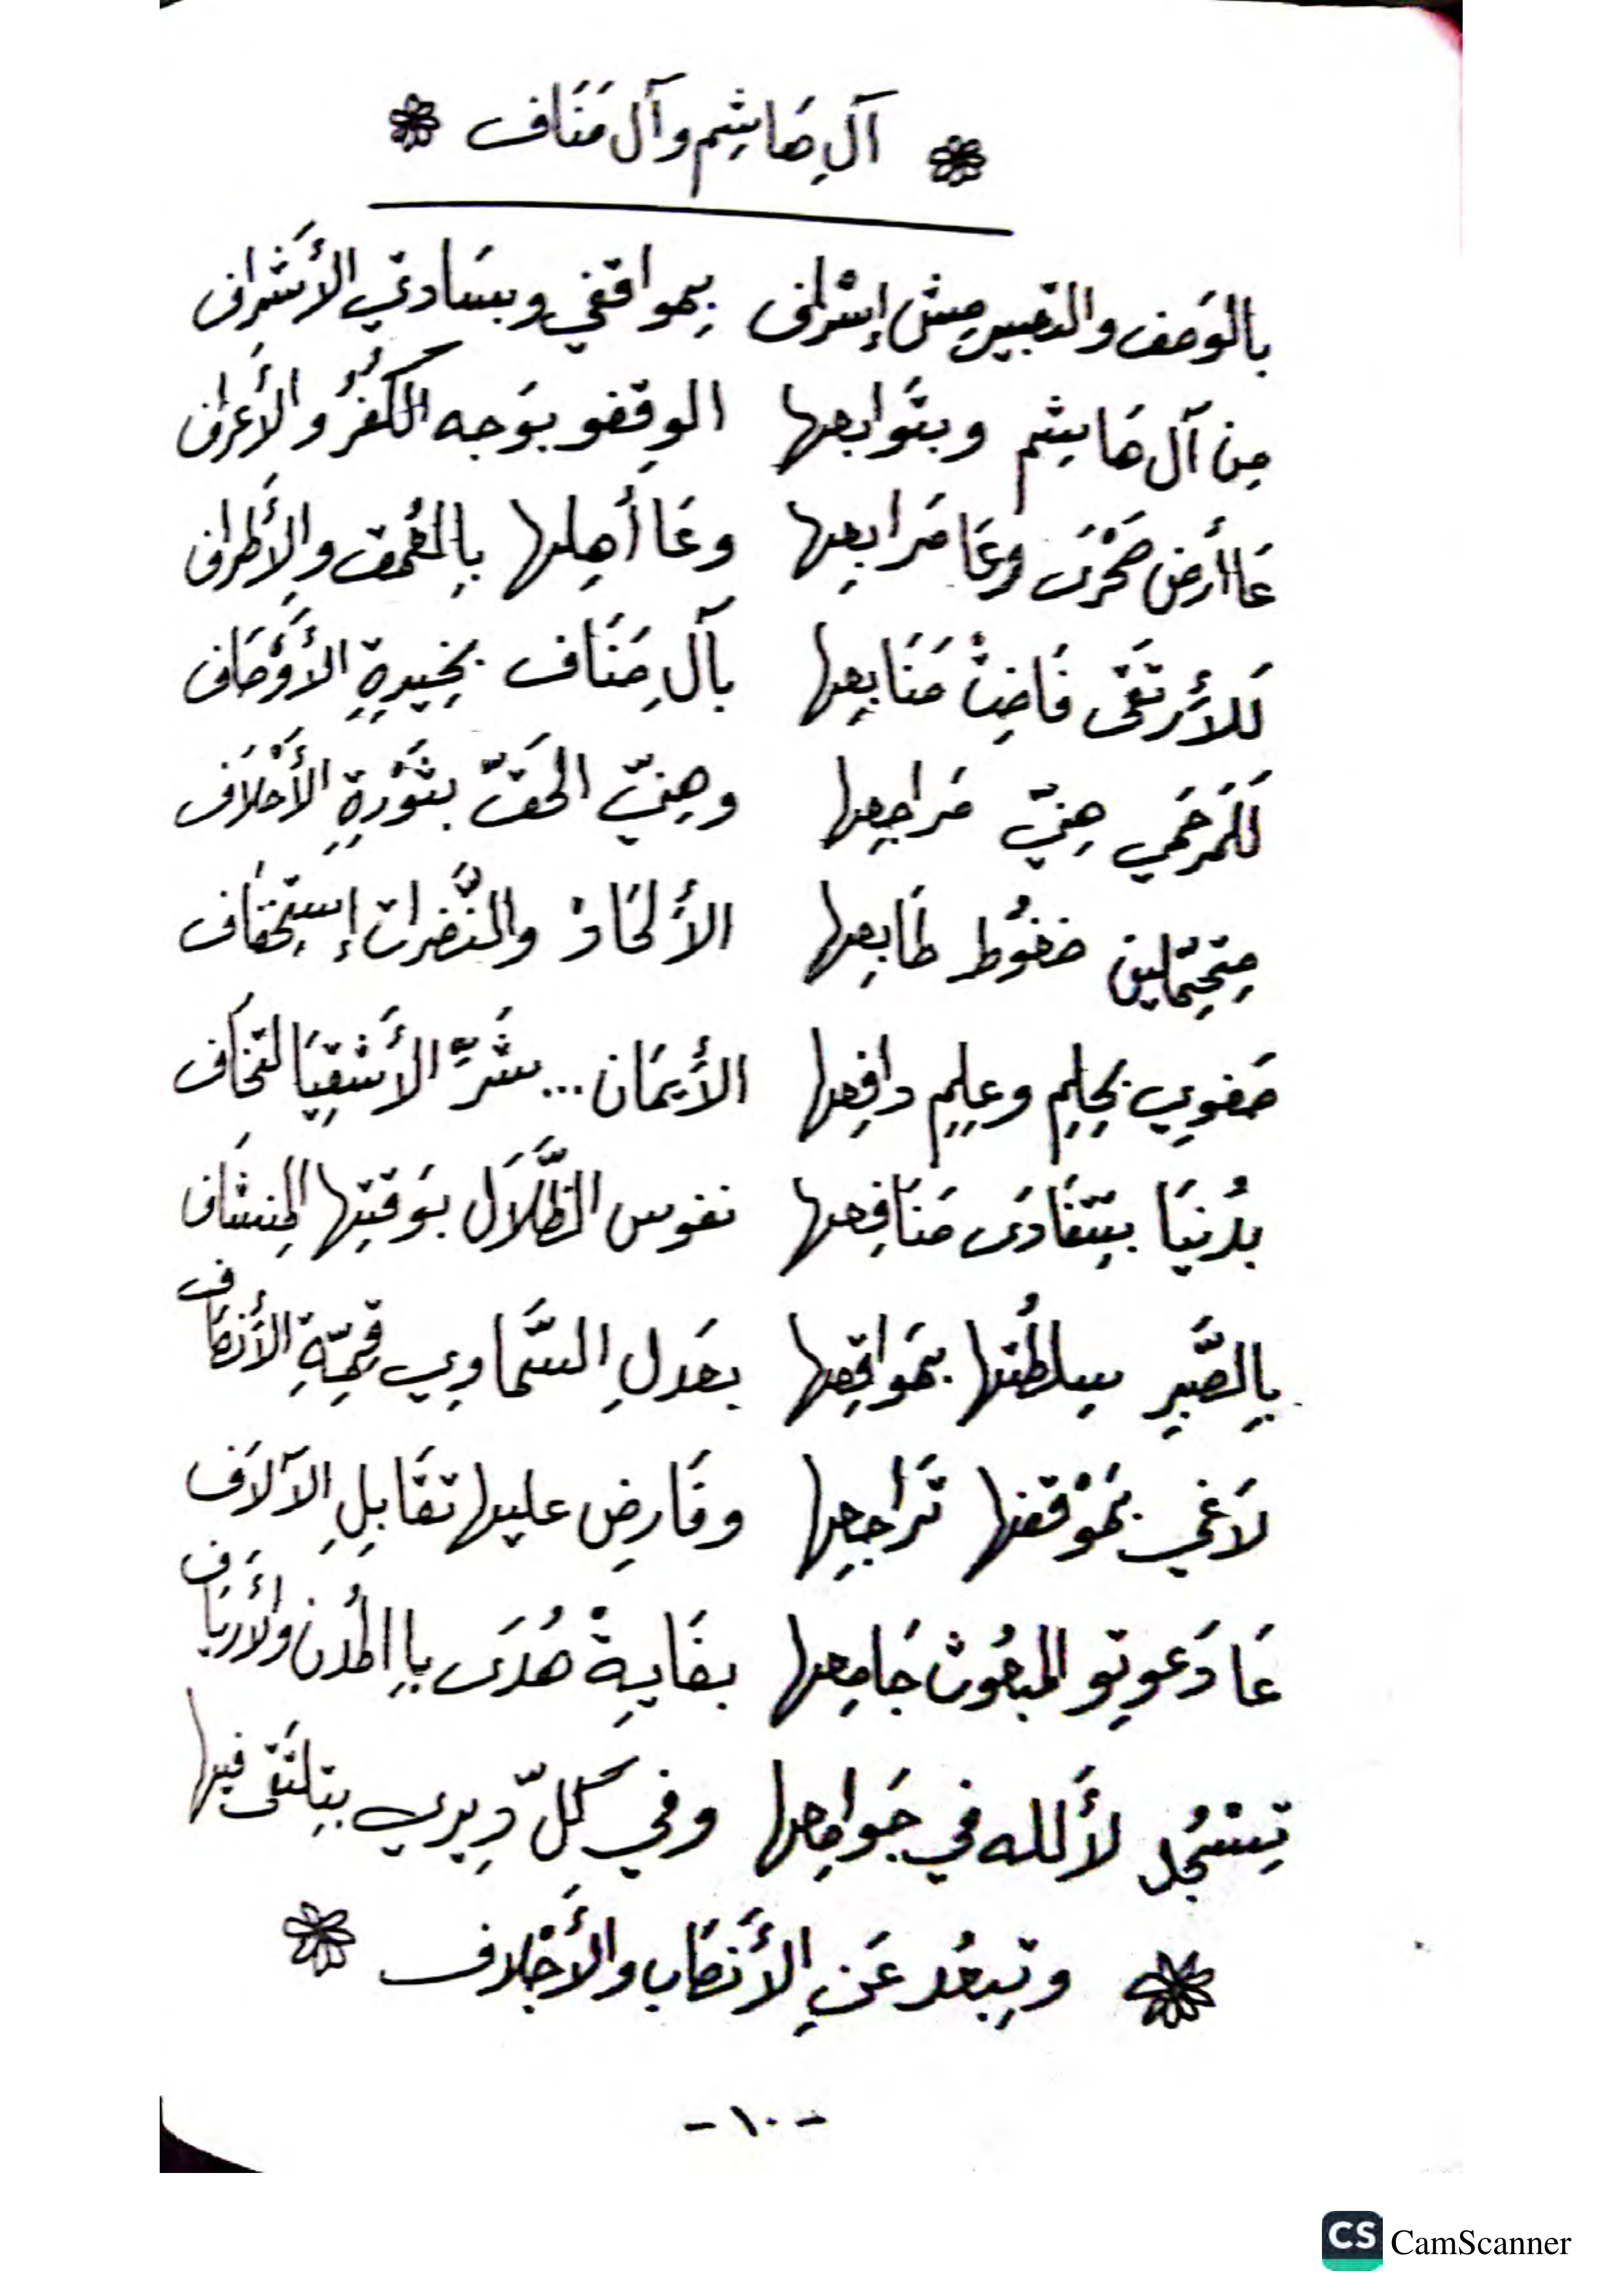 آلِ هَاشِم وآل مَنَاف
بالوَصف والتعبير مِش إسْرافي بِمواقفي وبسَادتي الأَشرافِ
مِن آل هَاشِم وبتَوابعها الوِقفو بوَجه الكُفرُ والأَعرافِ
عَا أَرض صَحْرَى وعَا مَرابِعها وعَا أَهِلها بِالعُمق والأَطرافِ
لَلأَرتَقَى فَاضِتْ مَنَابِعها بآلِ مَنَاف بخِيرِةِ الأَوْصَافِ
لَلمَرحَمِي هِنيّ مَراجِعها وهِنيّ الحَقّ بثَوْرِةِ الأَحْلَاف
مِتحِمّلين ضغُوط طَابِعها الألحَادْ والنَّضرات إستِخفَاف
صَفوِي بحِلِم وعِلِم دافِعها الأيمَان... شَرِّ الأَشْقِيَا لتخَاف
بدُنيَا بيتفَادَى مَنَافِعها نفوس الظَّلَال بوَقتِها المِنشَاف
بِالصَّبِر سِلطُتها بمَواقِعها بعَدلِ السَّماوِي قِمِّةِ الأَنصَاف
لَاغي بمَوْقفها تَراجِعها وفَارِض عليها تقَابِلِ الآلَاف
عَا دَعوِتو المَبعُوث جَامِعها بغَايِةْ هُدَى بِالمُدن والأَريَاف
تِسْجُد لألله في جَوامِعها وفي كلّ دِيري بيتلتقى فيها
وتِبعُد عَنِ الأَنصَاب والأَجْلاف
- ١٠ -
CS CamScanner